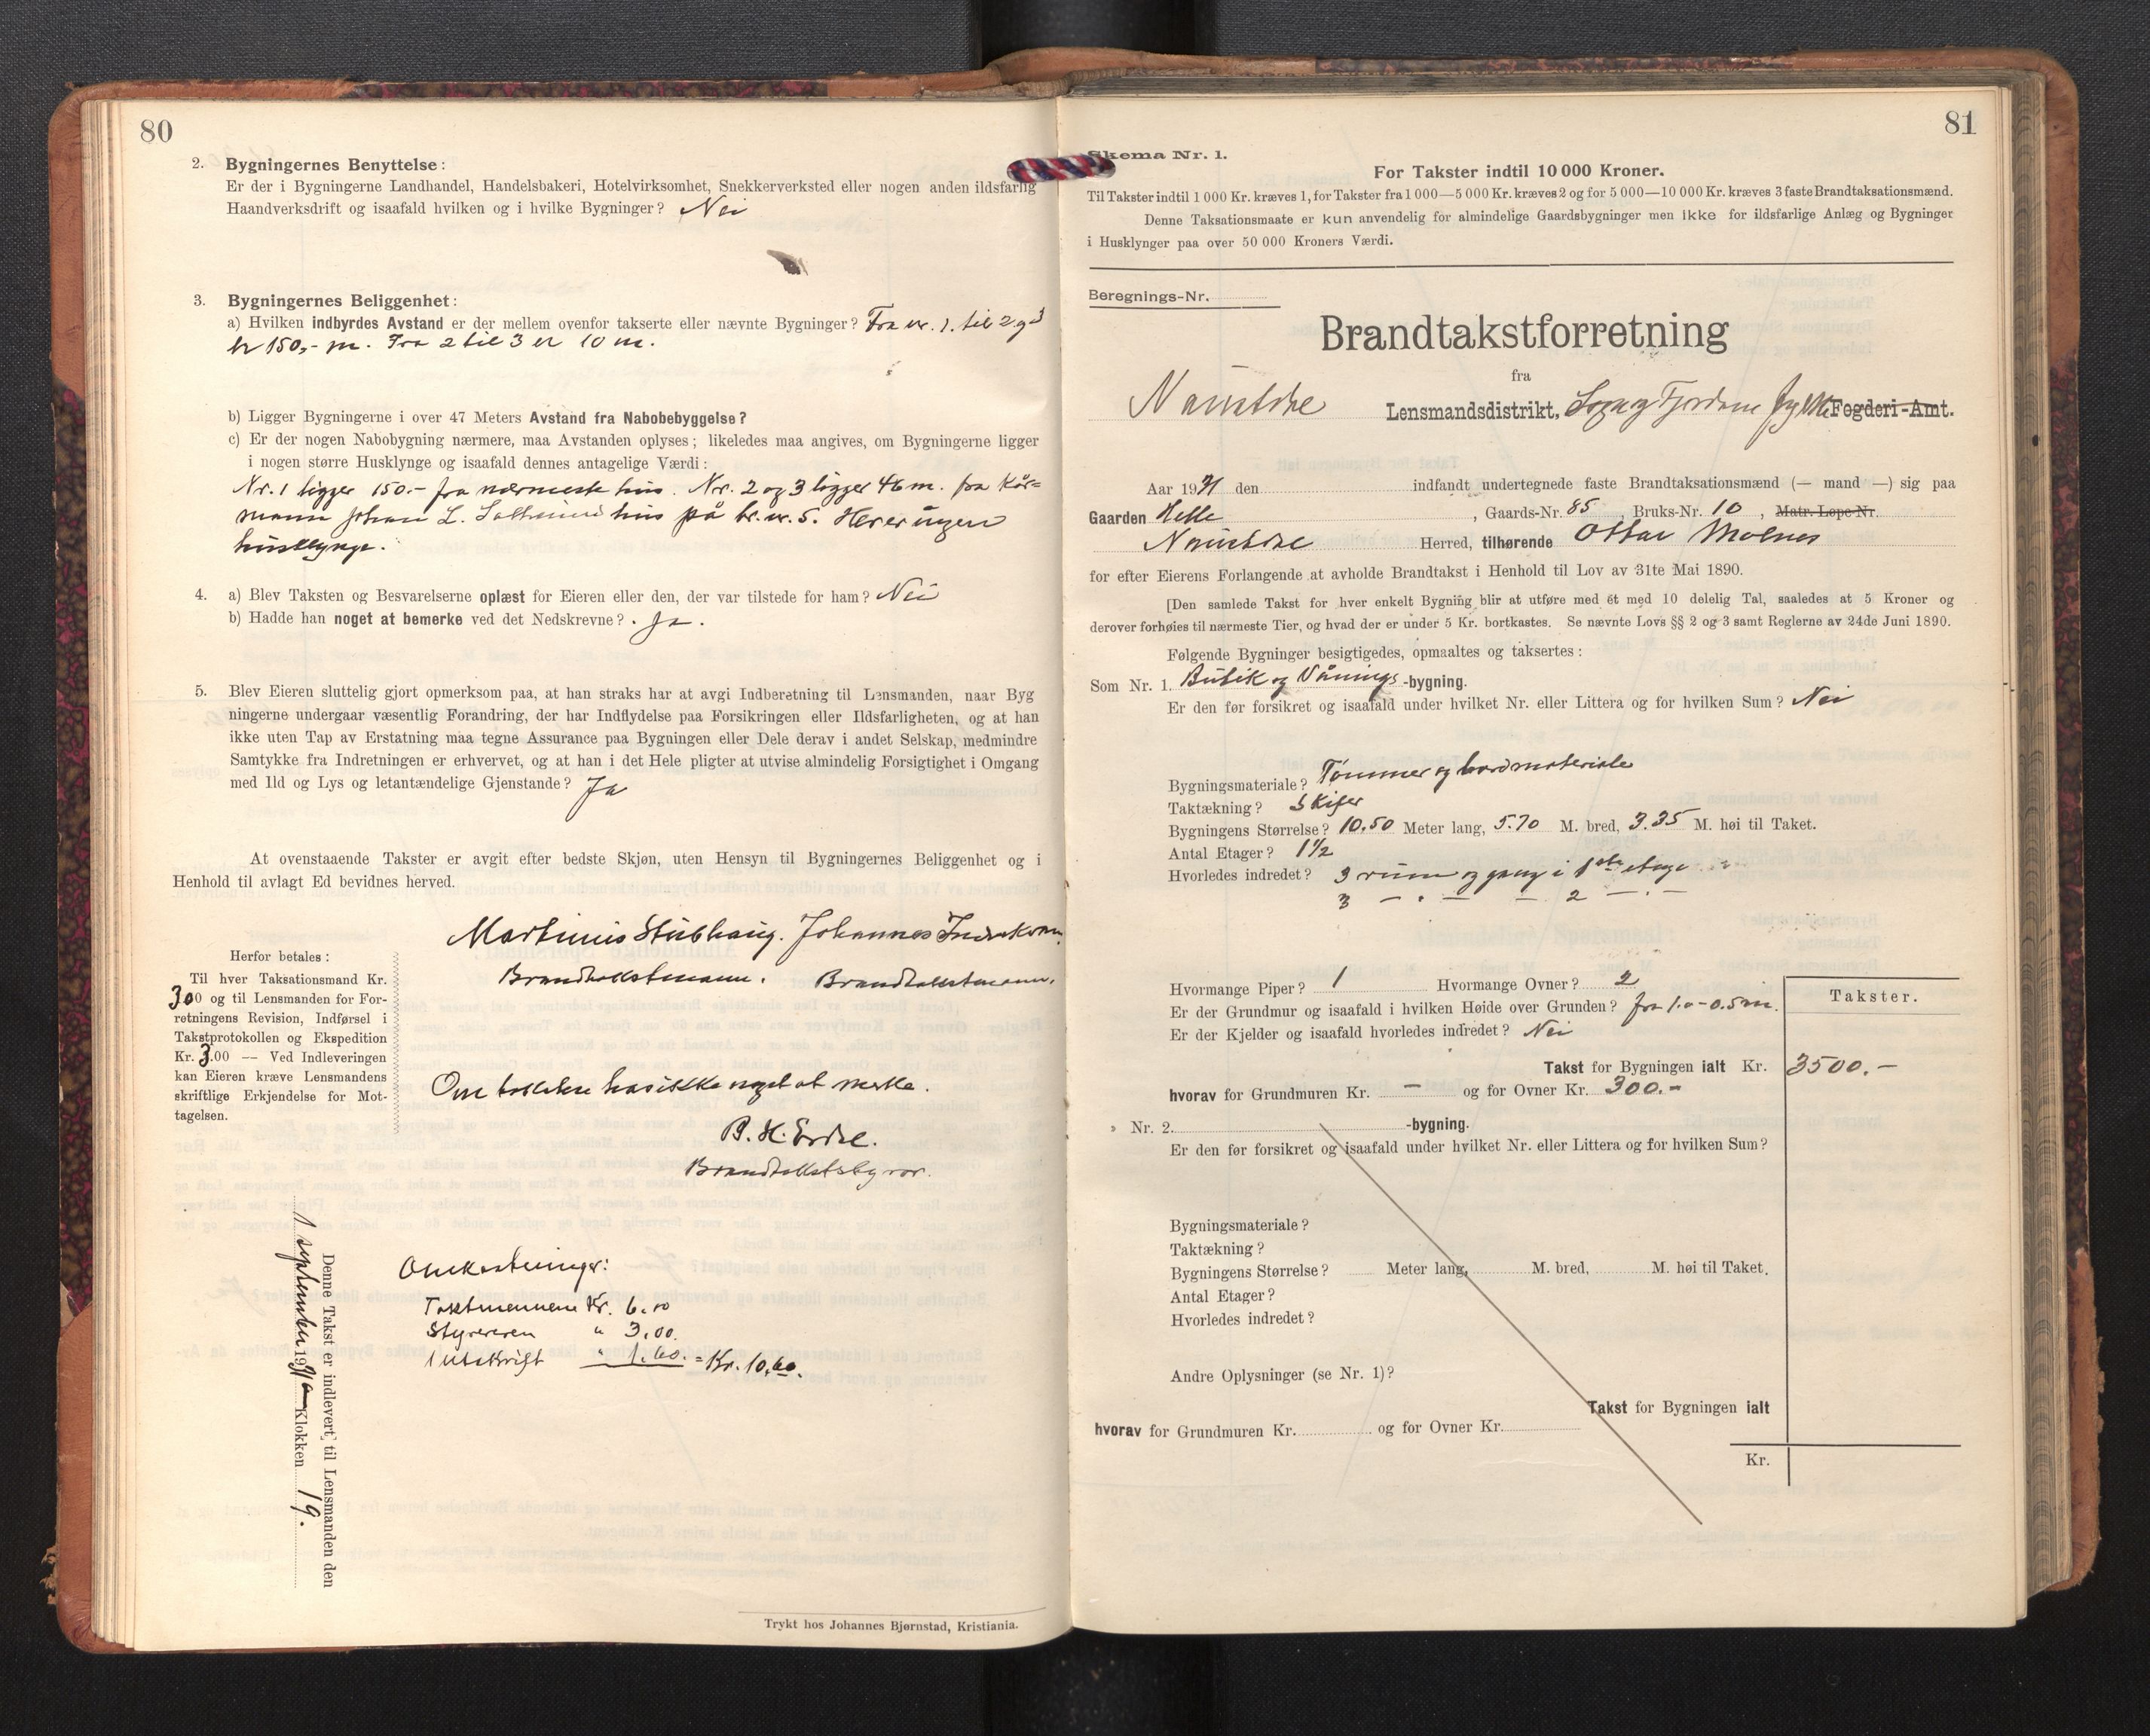 80
2. Bygningernes Benyttelse:
Er der i Bygningerne Landhandel, Handelsbakeri, Hotelvirksomhet, Snekkerverksted eller nogen anden ildsfarlig
Haandverksdrift og isaafald hvilken og i hvilke Bygninger? Nei
3. Bygningernes Beliggenhet:
a) Hvilken indbyrdes Avstand er der mellem ovenfor takserte eller nævnte Bygninger? Fra nr. 1. til 2 og 3
er 150,- m. Fra 2 til 3 er 10 m.
b) Ligger Bygningerne i over 47 Meters Avstand fra Nabobebyggelse?
c) Er der nogen Nabobygning nærmere, maa Avstanden oplyses; likeledes maa angives, om Bygningerne ligger
i nogen større Husklynge og isaafald dennes antagelige Værdi:
Nr. 1 ligger 150.- fra nærmeste hus. Nr. 2 og 3 ligger 46 m. fra Kår=
mann Johan L. hus på br. nr. 5. Her er ingen
husklynge.
4. a) Blev Taksten og Besvarelserne oplæst for Eieren eller den, der var tilstede for ham? Nei
b) Hadde han noget at bemerke ved det Nedskrevne? . Ja .
5. Blev Eieren sluttelig gjort opmerksom paa, at han straks har at avgi Indberetning til Lensmanden, naar Byg
ningerne undergaar væsentlig Forandring, der har Indflydelse paa Forsikringen eller Ildsfarligheten, og at han
ikke uten Tap av Erstatning maa tegne Assurance paa Bygningen eller Dele derav i andet Selskap, medmindre
Samtykke fra Indretningen er erhvervet, og at han i det Hele pligter at utvise almindelig Forsigtighet i Omgang
med Ild og Lys og letantændelige Gjenstande? Ja
At ovenstaaende Takster er avgit efter bedste Skjøn, uten Hensyn til Bygningernes Beliggenhet og i
Henhold til avlagt Ed bevidnes herved.
Martinus Stubhaug. Johannes Indrekvam.
Brandtakstmann. Brandtakstmann.
Herfor betales:
Til hver Taksationsmand Kr.
3.00 og til Lensmanden for For-
retningens Revision, Indførsel i
Takstprotokollen og Ekspedition
Kr. 3.00 — Ved Indleveringen
kan Eieren kræve Lensmandens
skriftlige Erkjendelse for Mot-
tagelsen.
Om takstene has ikke noget at merke.
B. H. Erdal.
Brandtakstbyror.
Omkostninger:
Takstmennene Kr. 6.00
Styreren " 3.00.
1 utskrift " 1.60. = Kr. 10.60.
Denne Takst er indlevert til Lensmanden den
1 september 1931 Klokken 19.
Trykt hos Johannes Bjørnstad, Kristiania.
81
Skema Nr. 1.
For Takster indtil 10 000 Kroner.
Til Takster indtil 1 000 Kr. kræves 1, for Takster fra 1 000—5 000 Kr. kræves 2 og for 5 000—10 000 Kr. kræves 3 faste Brandtaksationsmænd.
Denne Taksationsmaate er kun anvendelig for almindelige Gaardsbygninger men ikke for ildsfarlige Anlæg og Bygninger
i Husklynger paa over 50 000 Kroners Værdi.
Beregnings-Nr.
Brandtakstforretning
fra
Naustdal Lensmandsdistrikt, Sogn og Fjordane fylke Fogderi-Amt.
Aar 1931 den indfandt undertegnede faste Brandtaksationsmænd (— mand —) sig paa
Gaarden Helle, Gaards-Nr. 85, Bruks-Nr. 10, Matr. Løpe-Nr.
Naustdal Herred, tilhørende Ottar Molnes
for efter Eierens Forlangende at avholde Brandtakst i Henhold til Lov av 31te Mai 1890.
[Den samlede Takst for hver enkelt Bygning blir at utføre med ét med 10 delelig Tal, saaledes at 5 Kroner og
derover forhøies til nærmeste Tier, og hvad der er under 5 Kr. bortkastes. Se nævnte Lovs §§ 2 og 3 samt Reglerne av 24de Juni 1890.
Følgende Bygninger besigtigedes, opmaaltes og taksertes:
Som Nr. 1. Butik og Vånings-bygning.
Er den før forsikret og isaafald under hvilket Nr. eller Littera og for hvilken Sum? Nei
Bygningsmateriale? Tømmer og bordmateriale
Taktækning? Skifer
Bygningens Størrelse? 10.50 Meter lang, 5.70 M. bred, 3.35 M. høi til Taket.
Antal Etager? 1½
Hvorledes indredet? 3 rum og gang i 1ste etage
3 — " — — 2 — " —
Hvormange Piper? 1 Hvormange Ovner? 2
Er der Grundmur og isaafald i hvilken Høide over Grunden? fra 1.0 - 0.5 m.
Er de Kjelder og isaafald hvorledes indredet? Nei
Takster.
Takst for Bygningen ialt Kr. 3500.-
hvorav for Grundmuren Kr. — og for Ovner Kr. 300.-
Nr. 2. -bygning.
Er den før forsikret og isaafald under hvilket Nr. eller Littera og for hvilken Sum?
Bygningsmateriale?
Taktækning?
Bygningens Størrelse? Meter lang, M. bred, M. høi til Taket.
Antal Etager?
Hvorledes indredet?
Andre Oplysninger (se Nr. 1)?
Takst for Bygningen ialt
hvorav for Grundmuren Kr. og for Ovner Kr.
Kr.